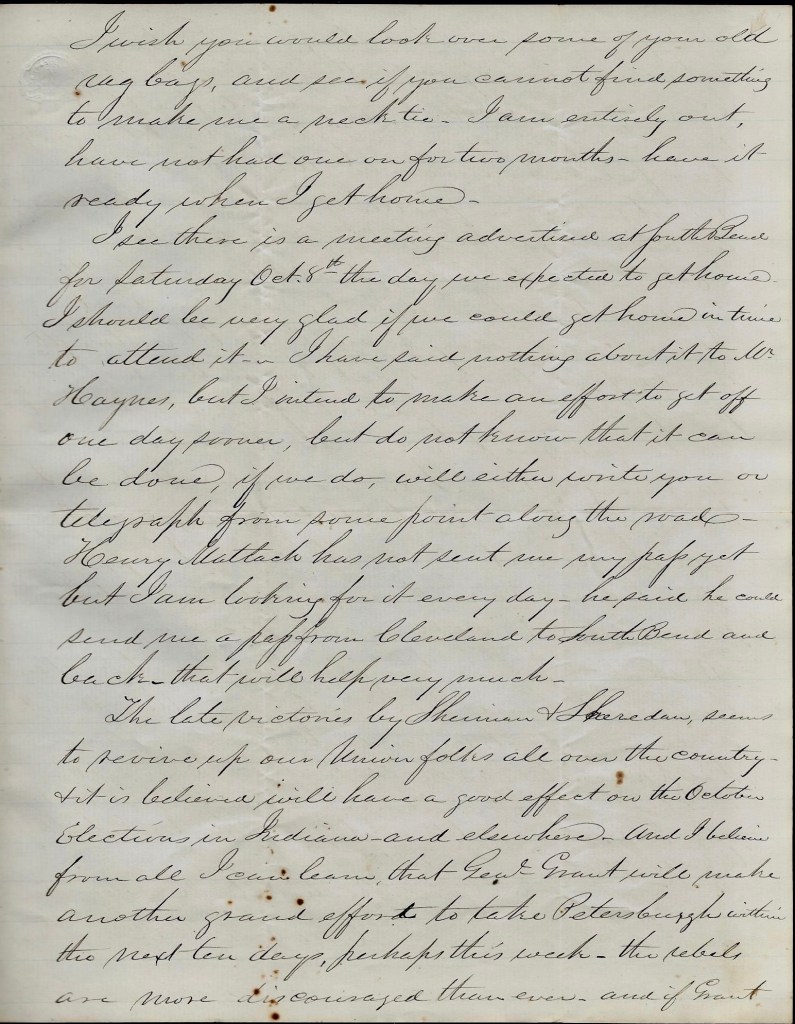 I wish you would look over some of your old
rag bags, and see if you cannot find something
to make me a neck tie - I am entirely out,
have not had one on for two months - have it
ready when I get home -
I see there is a meeting advertised at South Bend
for Saturday Oct. 8th the day we expected to get home.
I should be very glad if we could get home in time
to attend it - I have said nothing about it to Mr
Haynes, but I intend to make an effort to get off
one day sooner, but do not know that it can
be done, if we do, will either write you or
telegraph from some point along the road -
Henry Mattack has not sent me my pass yet
but I am looking for it every day - he said he could
send me a pass from Cleveland to South Bend and
back - that will help very much -
The late victories by Sherman & Sheredan, seems
to revive up our Union folks all over the country -
& it is believed will have a good effect on the October
Elections in Indiana - and elsewhere - And I believe
from all I can learn, that Genl Grant will make
another grand effort to take Petersburgh within
the next ten days, perhaps this week - the rebels
are more discouraged than ever - and if Grant